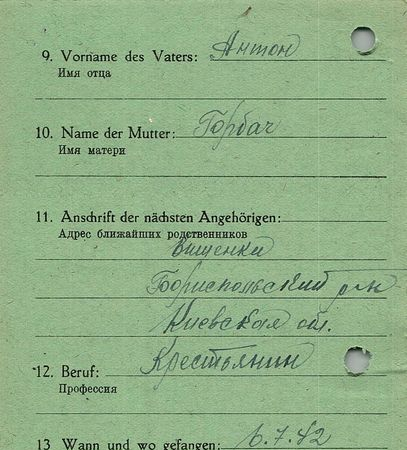 9. Vorname des Vaters: Антон
Имя отца
10. Name der Mutter: Горбач
Имя матери
11. Anschrift der nächsten Angehörigen:
Адрес ближайших родственников
Вишенки
Бориспольский р-н
Киевская обл.
12. Beruf: Крестьянин
Профессия
13 Wann und wo gefangen: 6.7.42